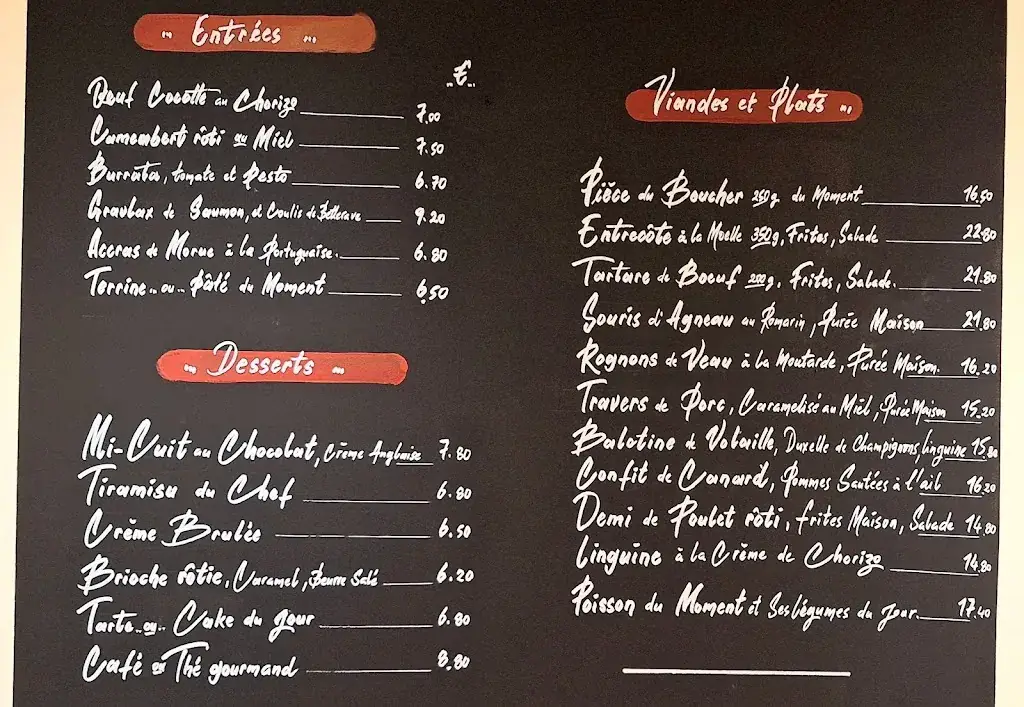 Entrées
€
Oeuf Cocotte au Chorizo 7.00
Camembert rôti au Miel 7.50
Burrata, tomate et Pesto 6.70
Gravlax de Saumon, et Coulis de Betterave 9.20
Accras de Morue à la Portugaise. 6.80
Terrine.. ou.. Pâté du Moment 6.50
Desserts
Mi-Cuit au Chocolat, Crème Anglaise 7.80
Tiramisu du Chef 6.80
Crème Brulée 6.50
Brioche rôtie, Caramel, Beurre Salé 6.20
Tarte.. ou.. Cake du jour 6.80
Café ou Thé gourmand 8.80
Viandes et Plats
Pièce du Boucher 250g. du Moment 16.50
Entrecôte à la Moelle 350g, Frites, Salade 22.80
Tartare de Boeuf 200g, Frites, Salade. 21.80
Souris d'Agneau au Romarin, Purée Maison 21.80
Rognons de Veau à la Moutarde, Purée Maison. 16.20
Travers de Porc, Caramelisé au Miel, Purée Maison 15.20
Balotine de Volaille, Duxelle de Champignons, linguine 15.80
Confit de Canard, Pommes Sautées à l'ail 16.20
Demi de Poulet rôti, frites Maison, Salade 14.80
Linguine à la Crème de Chorizo 14.80
Poisson du Moment et Ses légumes du jour. 17.40